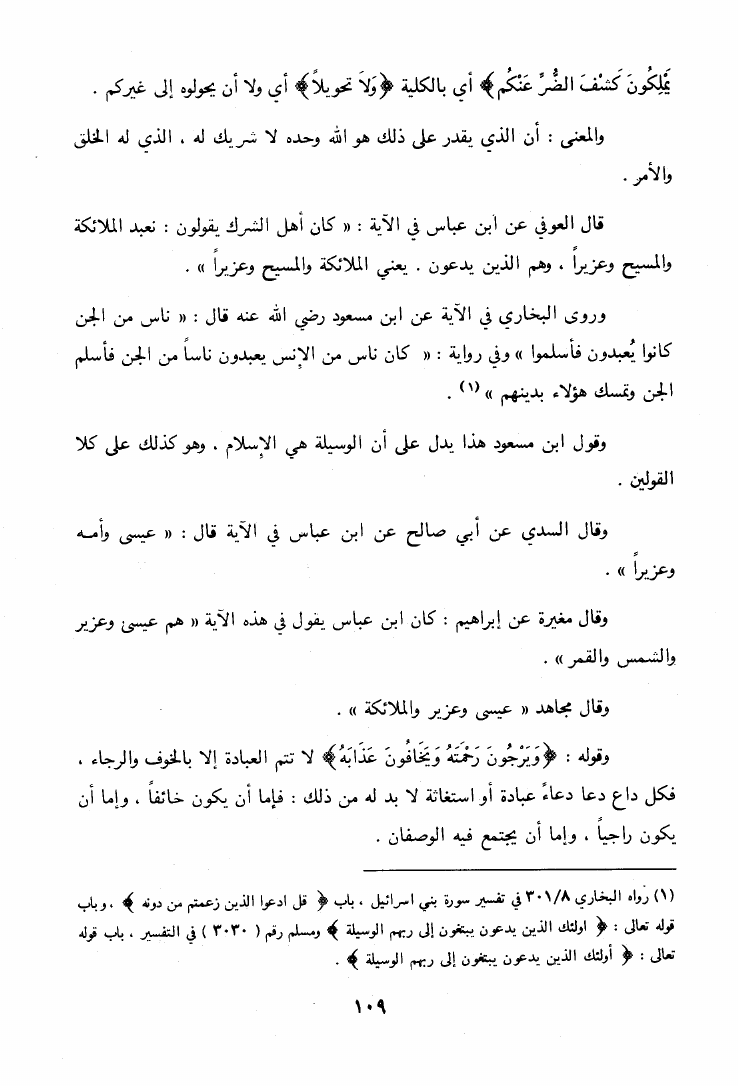 يَمْلِكُونَ كَشْفَ الضُّرِّ عَنْكُم﴾ أي بالكلية ﴿وَلاَ تحويلاً﴾ أي ولا أن يحولوه إلى غيركم .
والمعنى : أن الذي يقدر على ذلك هو الله وحده لا شريك له ، الذي له الخلق
والأمر .
قال العوفي عن ابن عباس في الآية : « كان أهل الشرك يقولون : نعبد الملائكة
والمسيح وعزيراً ، وهم الذين يدعون . يعني الملائكة والمسيح وعزيراً » .
وروى البخاري في الآية عن ابن مسعود رضي الله عنه قال : « ناس من الجن
كانوا يُعبدون فأسلموا » وفي رواية : « كان ناس من الإنس يعبدون ناساً من الجن فأسلم
الجن وتمسك هؤلاء بدينهم » (١) .
وقول ابن مسعود هذا يدل على أن الوسيلة هي الإسلام ، وهو كذلك على كلا
القولين .
وقال السدي عن أبي صالح عن ابن عباس في الآية قال : « عيسى وأمه
وعزيراً » .
وقال مغيرة عن إبراهيم : كان ابن عباس يقول في هذه الآية « هم عيسى وعزير
والشمس والقمر » .
وقال مجاهد « عيسى وعزير والملائكة » .
وقوله : ﴿وَيَرْجُونَ رَحْمَتَهُ وَيَخَافُونَ عَذَابَهُ﴾ لا تتم العبادة إلا بالخوف والرجاء ،
فكل داع دعا دعاءً عبادة أو استغاثة لا بد له من ذلك : فإما أن يكون خائفاً ، وإما أن
يكون راجياً ، وإما أن يجتمع فيه الوصفان .
(١) رواه البخاري ٣٠١/٨ في تفسير سورة بني اسرائيل ، باب ﴿ قل ادعوا الذين زعمتم من دونه ﴾ ، وباب
قوله تعالى : ﴿ اولئك الذين يدعون يبتغون إلى ربهم الوسيلة ﴾ ومسلم رقم ( ٣٠٣٠ ) في التفسير ، باب قوله
تعالى : ﴿ أولئك الذين يدعون يبتغون إلى ربهم الوسيلة ﴾ .
١٠٩